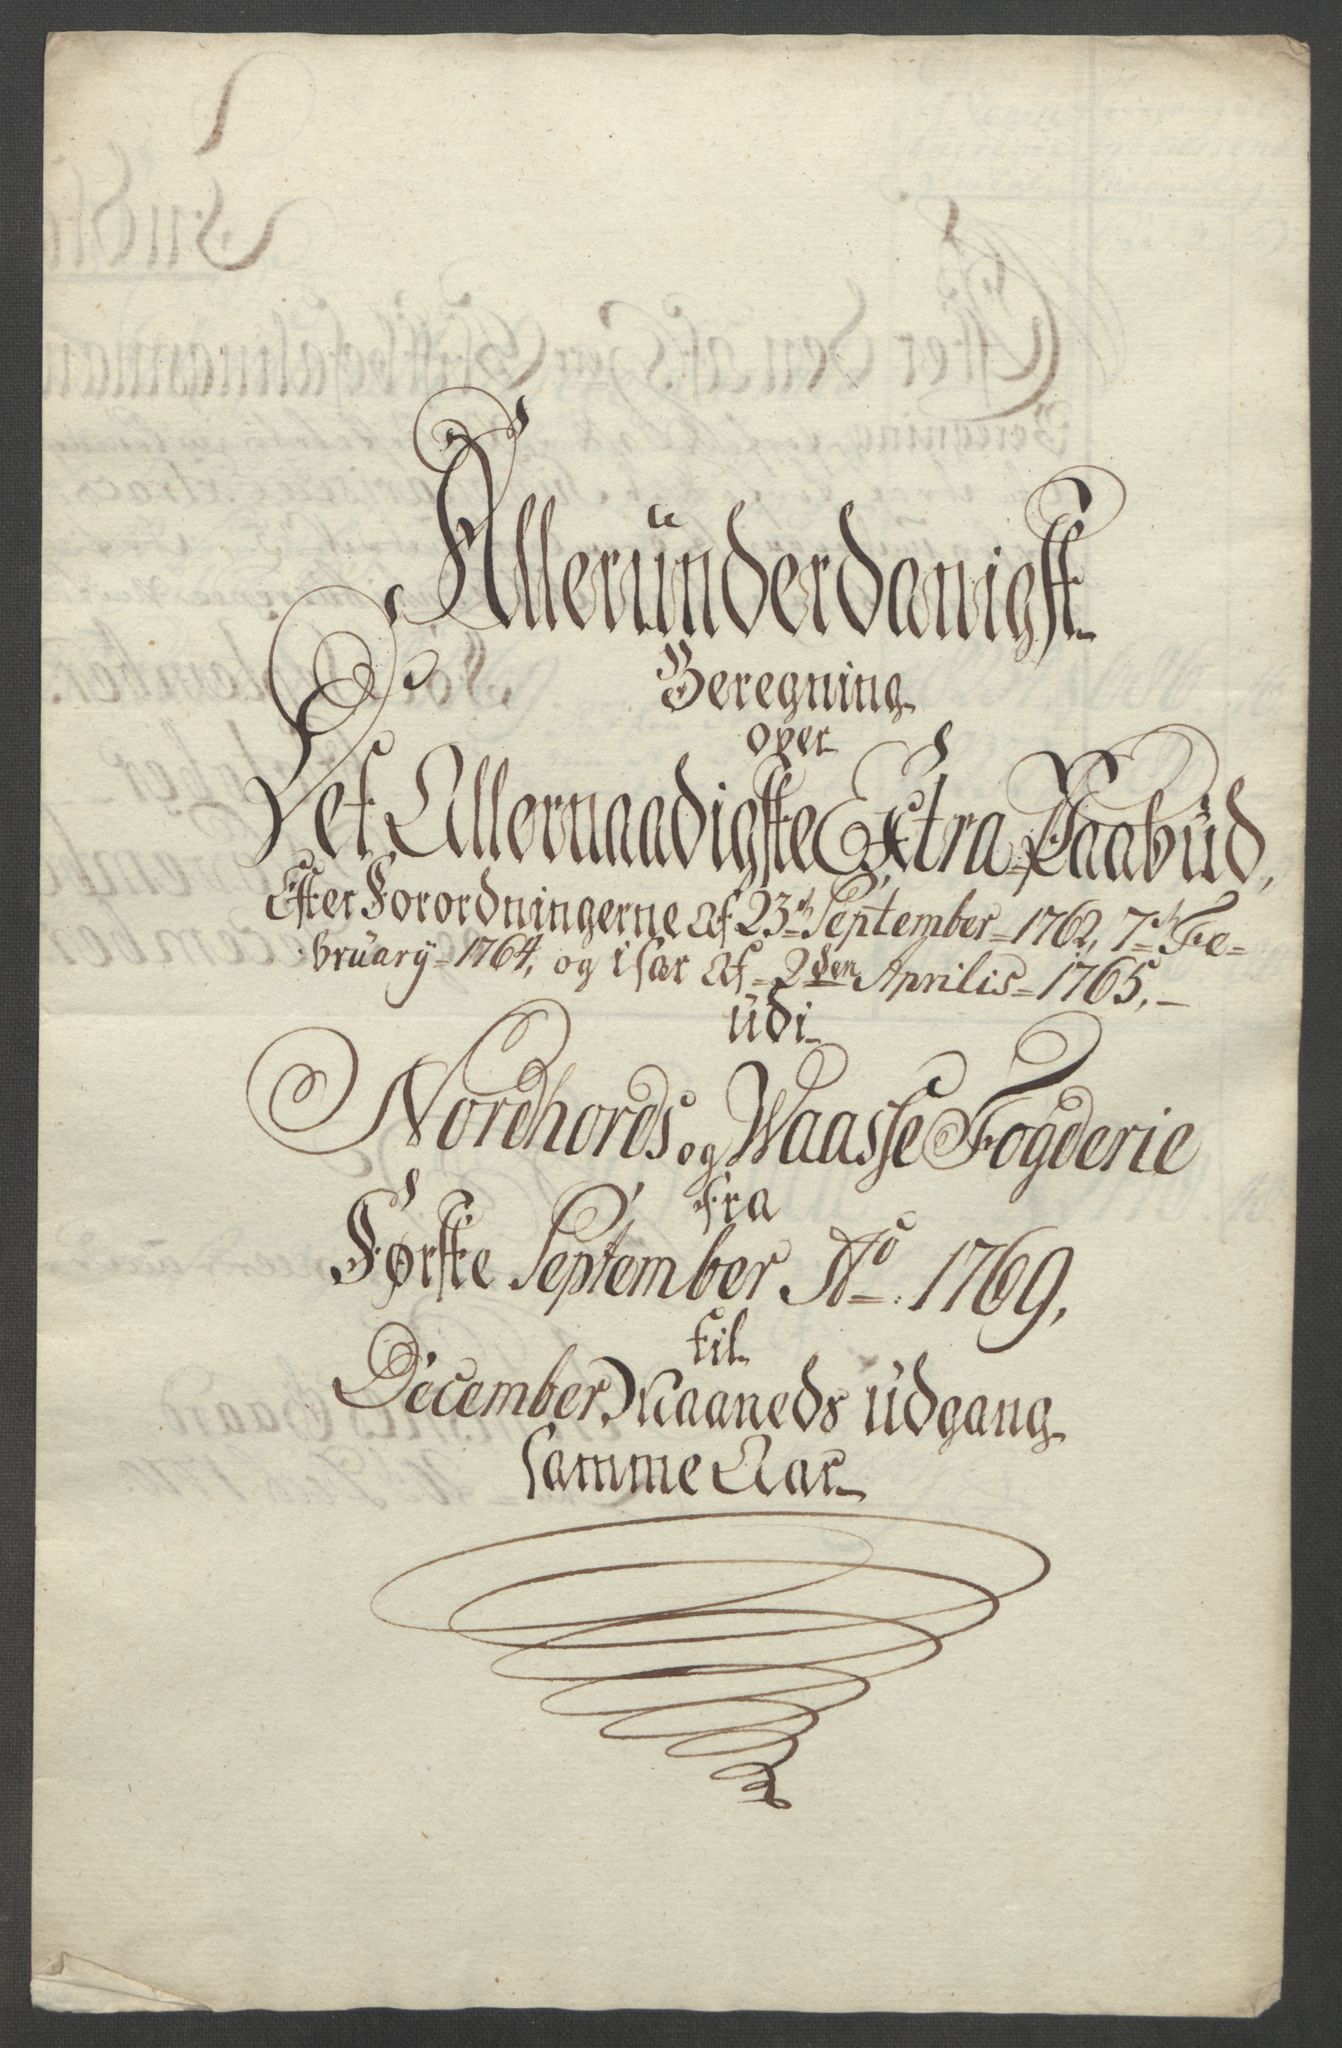 Alleründerdanigst
Beregning
over
Det Allernaadigste Extra Paabüd,
Efter Forordningerne af 23de September 1762, 7de Fe-
brüary 1764, og i sær af 2den Aprilis 1765,
üdi
Nordhords og Waasse Fogderie
fra
Første September Ao 1769,
til
December Maaneds Üdgang
samme Aar